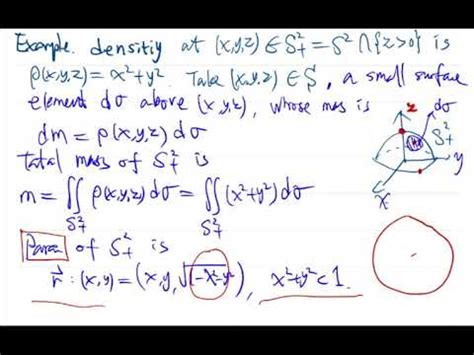 Example. densitiy at (x,y,z) ∈ S²₊ = S² ∩ {z>0} is
ρ(x,y,z) = x²+y². Take (x,y,z) ∈ S, a small surface
element dσ above (x,y,z), whose mas is
dm = ρ(x,y,z) dσ
Total mass of S²₊ is
m = ∬_{S²₊} ρ(x,y,z) dσ = ∬_{S²₊} (x²+y²) dσ
Param of S²₊ is
r⃗ : (x,y) = (x, y, √(1-x²-y²)), x²+y² < 1.
z
dσ
S²₊
y
x